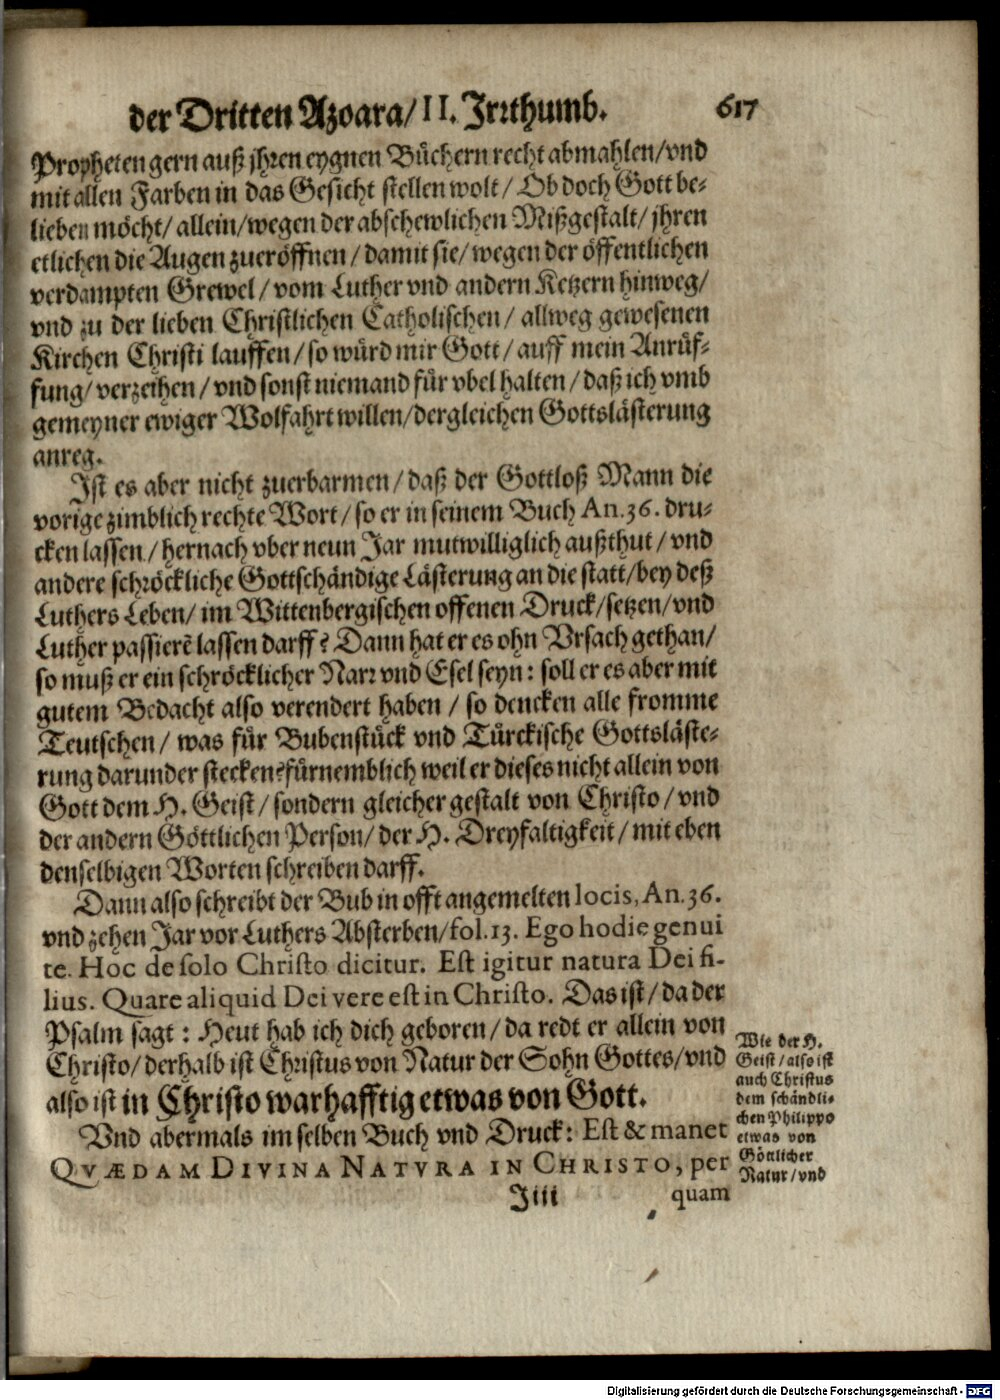 der Dritten Azoara/ II. Irꝛthumb. 617
Propheten gern auß jhren eygnen Büchern recht abmahlen/ vnd
mit allen Farben in das Gesicht stellen wolt/ Ob doch Gott be-
lieben möcht/ allein/ wegen der abschewlichen Mißgestalt/ jhren
etlichen die Augen zueröffnen/ damit sie/ wegen der öffentlichen
verdampten Grewel/ vom Luther vnd andern Ketzern hinweg/
vnd zu der lieben Christlichen Catholischen/ allweg gewesenen
Kirchen Christi lauffen/ so würd mir Gott/ auff mein Anrüf-
fung/ verzeihen/ vnd sonst niemand für vbel halten/ daß ich vmb
gemeyner ewiger Wolfahrt willen/ dergleichen Gottslästerung
anreg.
Ist es aber nicht zuerbarmen/ daß der Gottloß Mann die
vorige zimblich rechte Wort/ so er in seinem Buch An. 36. dru-
cken lassen/ hernach vber neun Jar mutwilliglich außthut/ vnd
andere schröckliche Gottschändige Lästerung an die statt/ bey deß
Luthers Leben/ im Wittenbergischen offenen Druck/ setzen/ vnd
Luther passierē lassen darff? Dann hat er es ohn Vrsach gethan/
so muß er ein schröcklicher Narꝛ vnd Esel seyn: soll er es aber mit
gutem Bedacht also verendert haben/ so dencken alle fromme
Teutschen/ was für Bubenstück vnd Türckische Gottsläste-
rung darunder stecken? fürnemblich weil er dieses nicht allein von
Gott dem H. Geist/ sondern gleicher gestalt von Christo/ vnd
der andern Göttlichen Person/ der H. Dreyfaltigkeit/ mit eben
denselbigen Worten schreiben darff.
Dann also schreibt der Bub in offt angemelten locis, An. 36.
vnd zehen Jar vor Luthers Absterben/ fol. 13. Ego hodie genui
te. Hoc de solo Christo dicitur. Est igitur natura Dei fi-
lius. Quare aliquid Dei vere est in Christo. Das ist/ da der
Psalm sagt: Heut hab ich dich geboren/ da redt er allein von
Christo/ derhalb ist Christus von Natur der Sohn Gottes/ vnd
also ist in Christo warhafftig etwas von Gott.
Vnd abermals im selben Buch vnd Druck: Est & manet
QVÆDAM DIVINA NATVRA IN CHRISTO, per
Jiii quam
Wie der H.
Geist/ also ist
auch Christus
dem schändli-
chen Philippo
etwas von
Göttlicher
Natur/ vnd
Digitalisierung gefördert durch die Deutsche Forschungsgemeinschaft - DFG